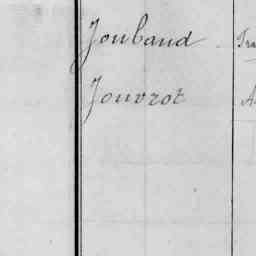 Joubaud
Jouvrot